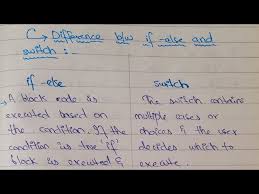 ↪ Difference b/w if-else and
switch :-
if-else
switch
A block code is
executed based on
the condition. If the
condition is true 'if'
block is executed &
The switch contains
multiple cases or
choices & the user
decides which to
execute.